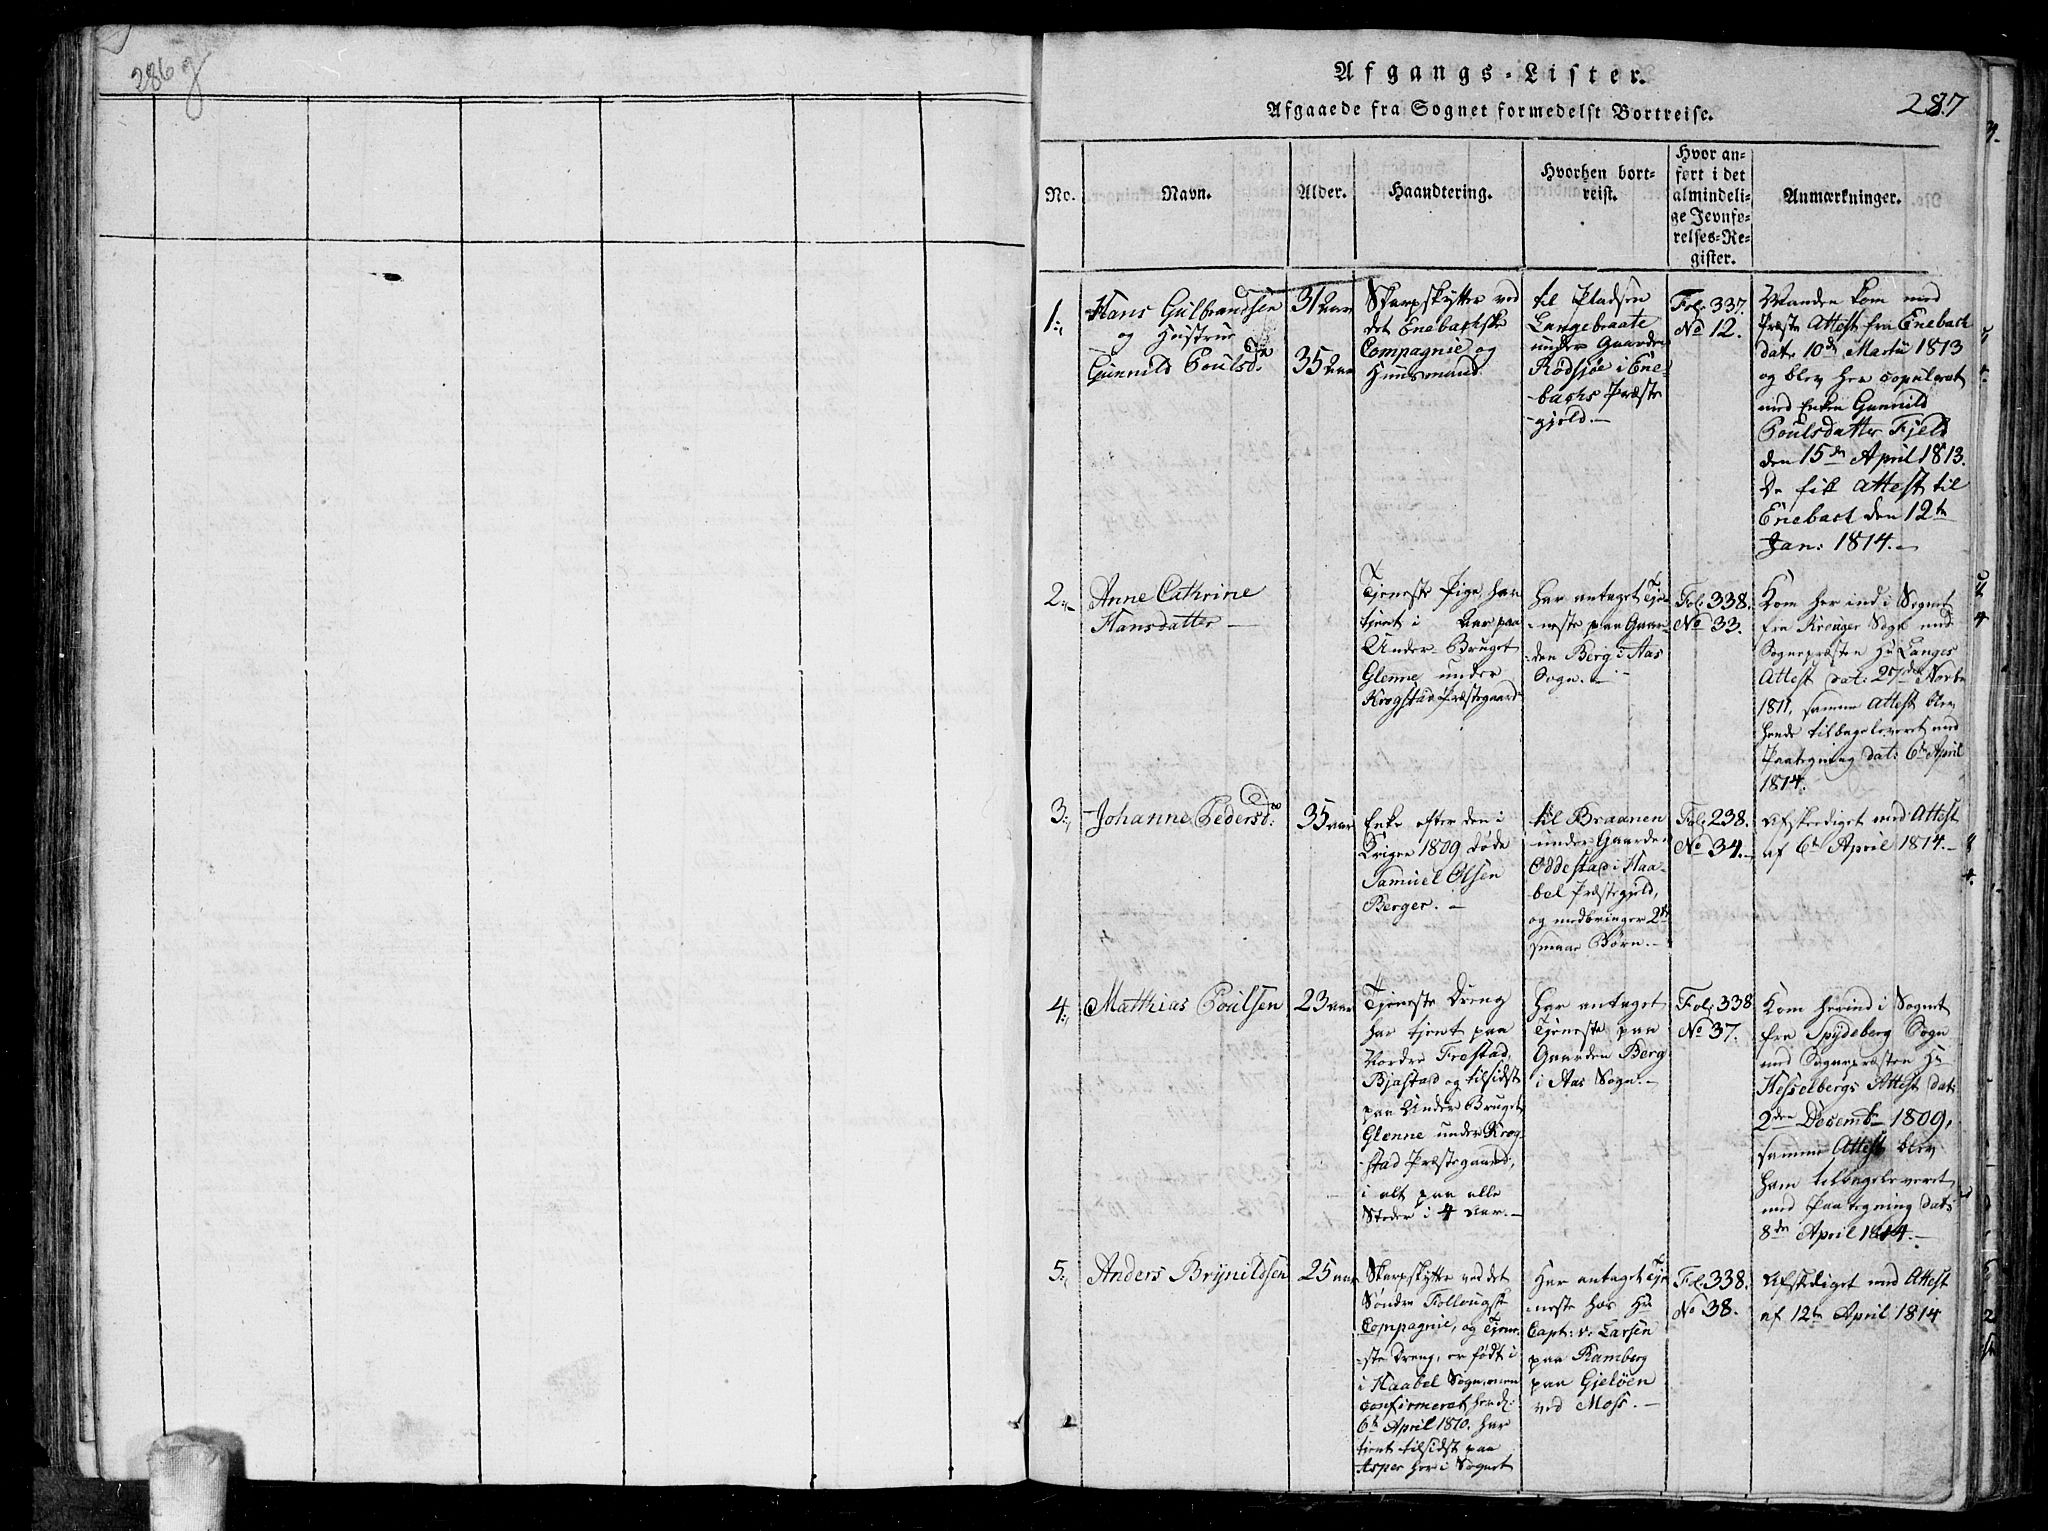 286g
Afgangs-Lister.
287
Afgaaede fra Sognet formedelst Bortreise.
No.
Navn.
Alder.
Haandtering.
Hvorhen bort-
reist.
Hvor an-
ført i det
almindeli-
ge Jevnfø-
relses-Re-
gister.
Anmærkninger.
1.
Hans Gulbrandsen
og Hustrue
Gunnild Poulsd.
31 aar
35 aar
Skarpskytter ved
det Enebachske
Compagnie og
Huusmand.
til Pladsen
Langebraate
under Gaarden
Rødsjøe i Ene-
bachs Præste-
gjeld.
Fol. 337.
No 12.
Manden kom med
Præste Attest fra Enebach
dat. 10de Martii 1813
og blev her copuleret
med Enken Gunnild
Poulsdatter Fjeld
den 15de April 1813.
De fik Attest til
Enebach den 12te
Jan: 1814.
2.
Anne Cathrine
Hansdatter
Tjeneste Pige, har
tjent i Aar paa
Under-Bruget
Glenne under
Krogstad Præstegaard
Har antaget Tje-
neste paa Gaar-
den Berg i Aas
Sogn.
Fol. 338.
No 33.
Kom her ind i Sognet
fra Sogn med
Sognepræsten Hr Langes
Attest dat: 27de Novbr
1811, samme Attest blev
hende tilbageleveret med
Paategning dat: 6te April
1814.
3.
Johanne Pedersd:
35 aar
Enke efter den i
Krigen 1809 døde
Samuel Olsen
Berger.
til Braanen
under Gaarden
Oddestad i Haa-
bel Præstegield,
og medbringer 2de
smaae Børn.
Fol. 238.
No 34.
Afskediget med Attest
af 6te April 1814.
4.
Mathias Poulsen
23 aar
Tjeneste Dreng
har tjent paa
Nordre Frestad,
Bjastad og tilsidst
paa Under Bruget
Glenne under Krog-
stad Præstegaard,
i alt paa alle
Steder i 4 Aar.
Har antaget
Tjeneste paa
Gaarden Berg
i Aas Sogn.
Fol. 338
No 37.
Kom herind i Sognet
fra Spydeberg Sogn
med Sognepræsten Hr
Hesselbergs Attest dat:
2den Decembr 1809,
samme Attest blev
ham tilbageleveret,
med Paategning dat:
8de April 1814.
5.
Anders Brynildsen
25 aar
Skarpskytte ved det
Søndre Follougske
Compagnie, og Tjene-
ste Dreng, er født i
i Haabel Sogn, men
confirmeret her d:
6te April 1810. har
tjent tilsidst paa
Asper her i Sognet
Har antaget Tje-
neste hos Hr
Capt: v. Larsen
paa Ramberg
paa Gjeløen
ved Moss.
Fol. 338.
No 38.
Afskediget med Attest
af 12te April 1814